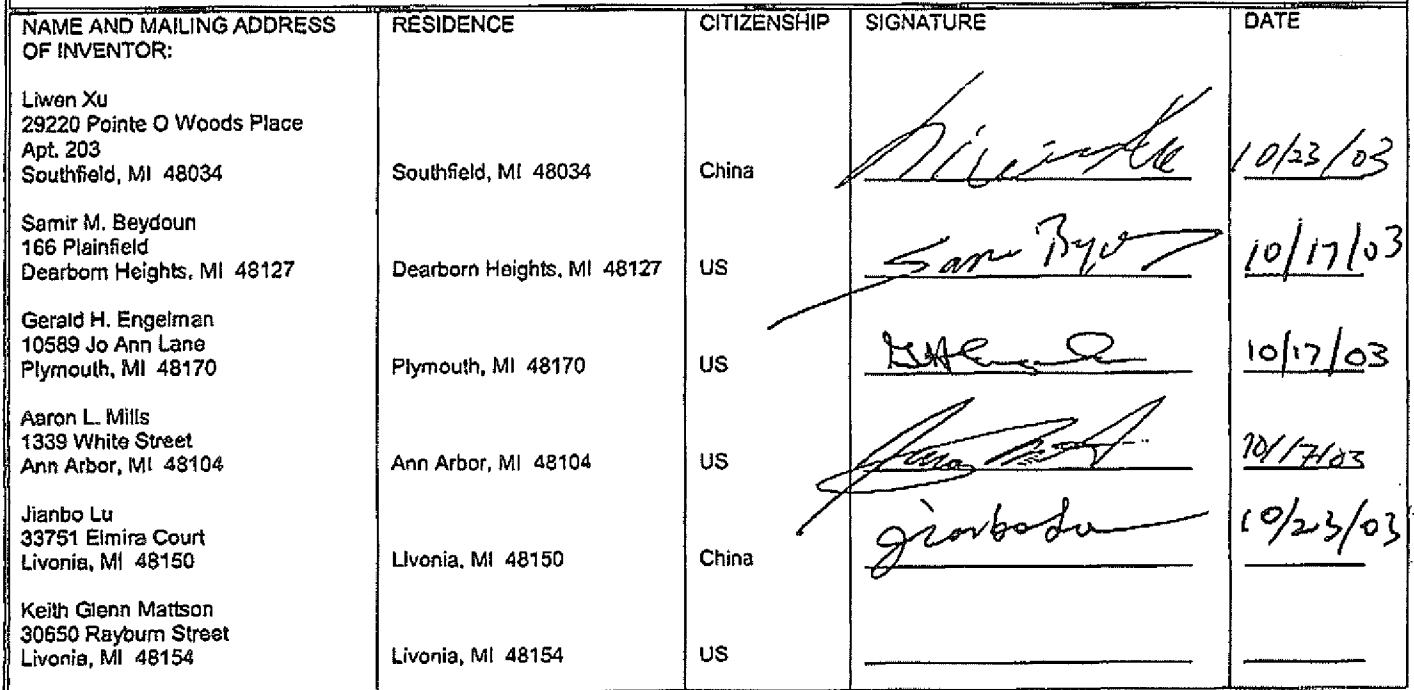 NAME AND MAILING ADDRESS OF INVENTOR: RESIDENCE CITIZENSHIP SIGNATURE DATE
Liwen Xu
29220 Pointe O Woods Place
Apt. 203
Southfield, MI 48034 Southfield, MI 48034 China 10/23/03
Samir M. Beydoun
166 Plainfield
Dearborn Heights, MI 48127 Dearborn Heights, MI 48127 US 10/17/03
Gerald H. Engelman
10589 Jo Ann Lane
Plymouth, MI 48170 Plymouth, MI 48170 US 10/17/03
Aaron L. Mills
1339 White Street
Ann Arbor, MI 48104 Ann Arbor, MI 48104 US 10/17/03
Jianbo Lu
33751 Elmira Court
Livonia, MI 48150 Livonia, MI 48150 China Jianbo Lu 10/23/03
Keith Glenn Mattson
30650 Rayburn Street
Livonia, MI 48154 Livonia, MI 48154 US